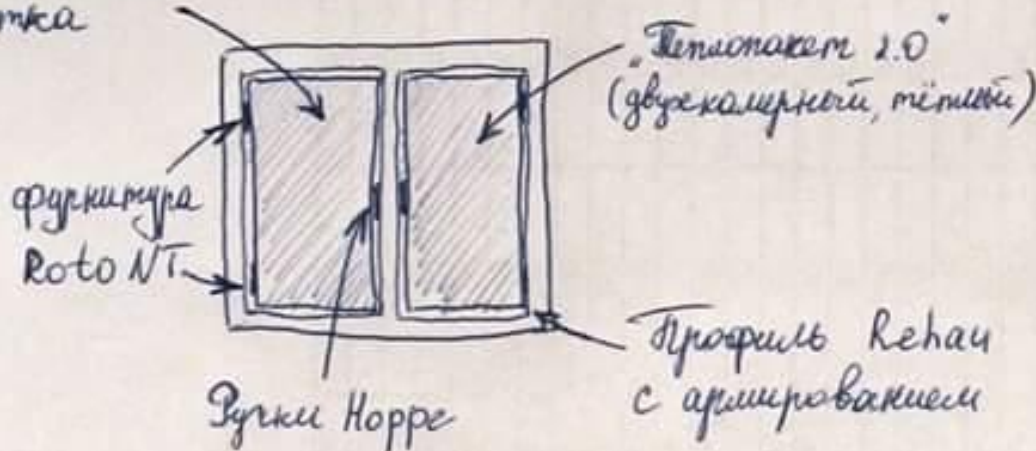 „Теплопакет 2.0"
(двухкамерный, тёплый)
фурнитура
Roto NT
Ручки Hoppe
Профиль Rehau
с армированием